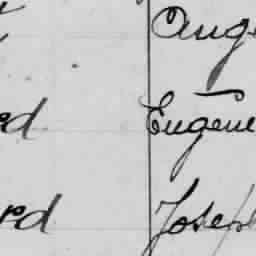 Aug
ed Eugene
rd Joseph